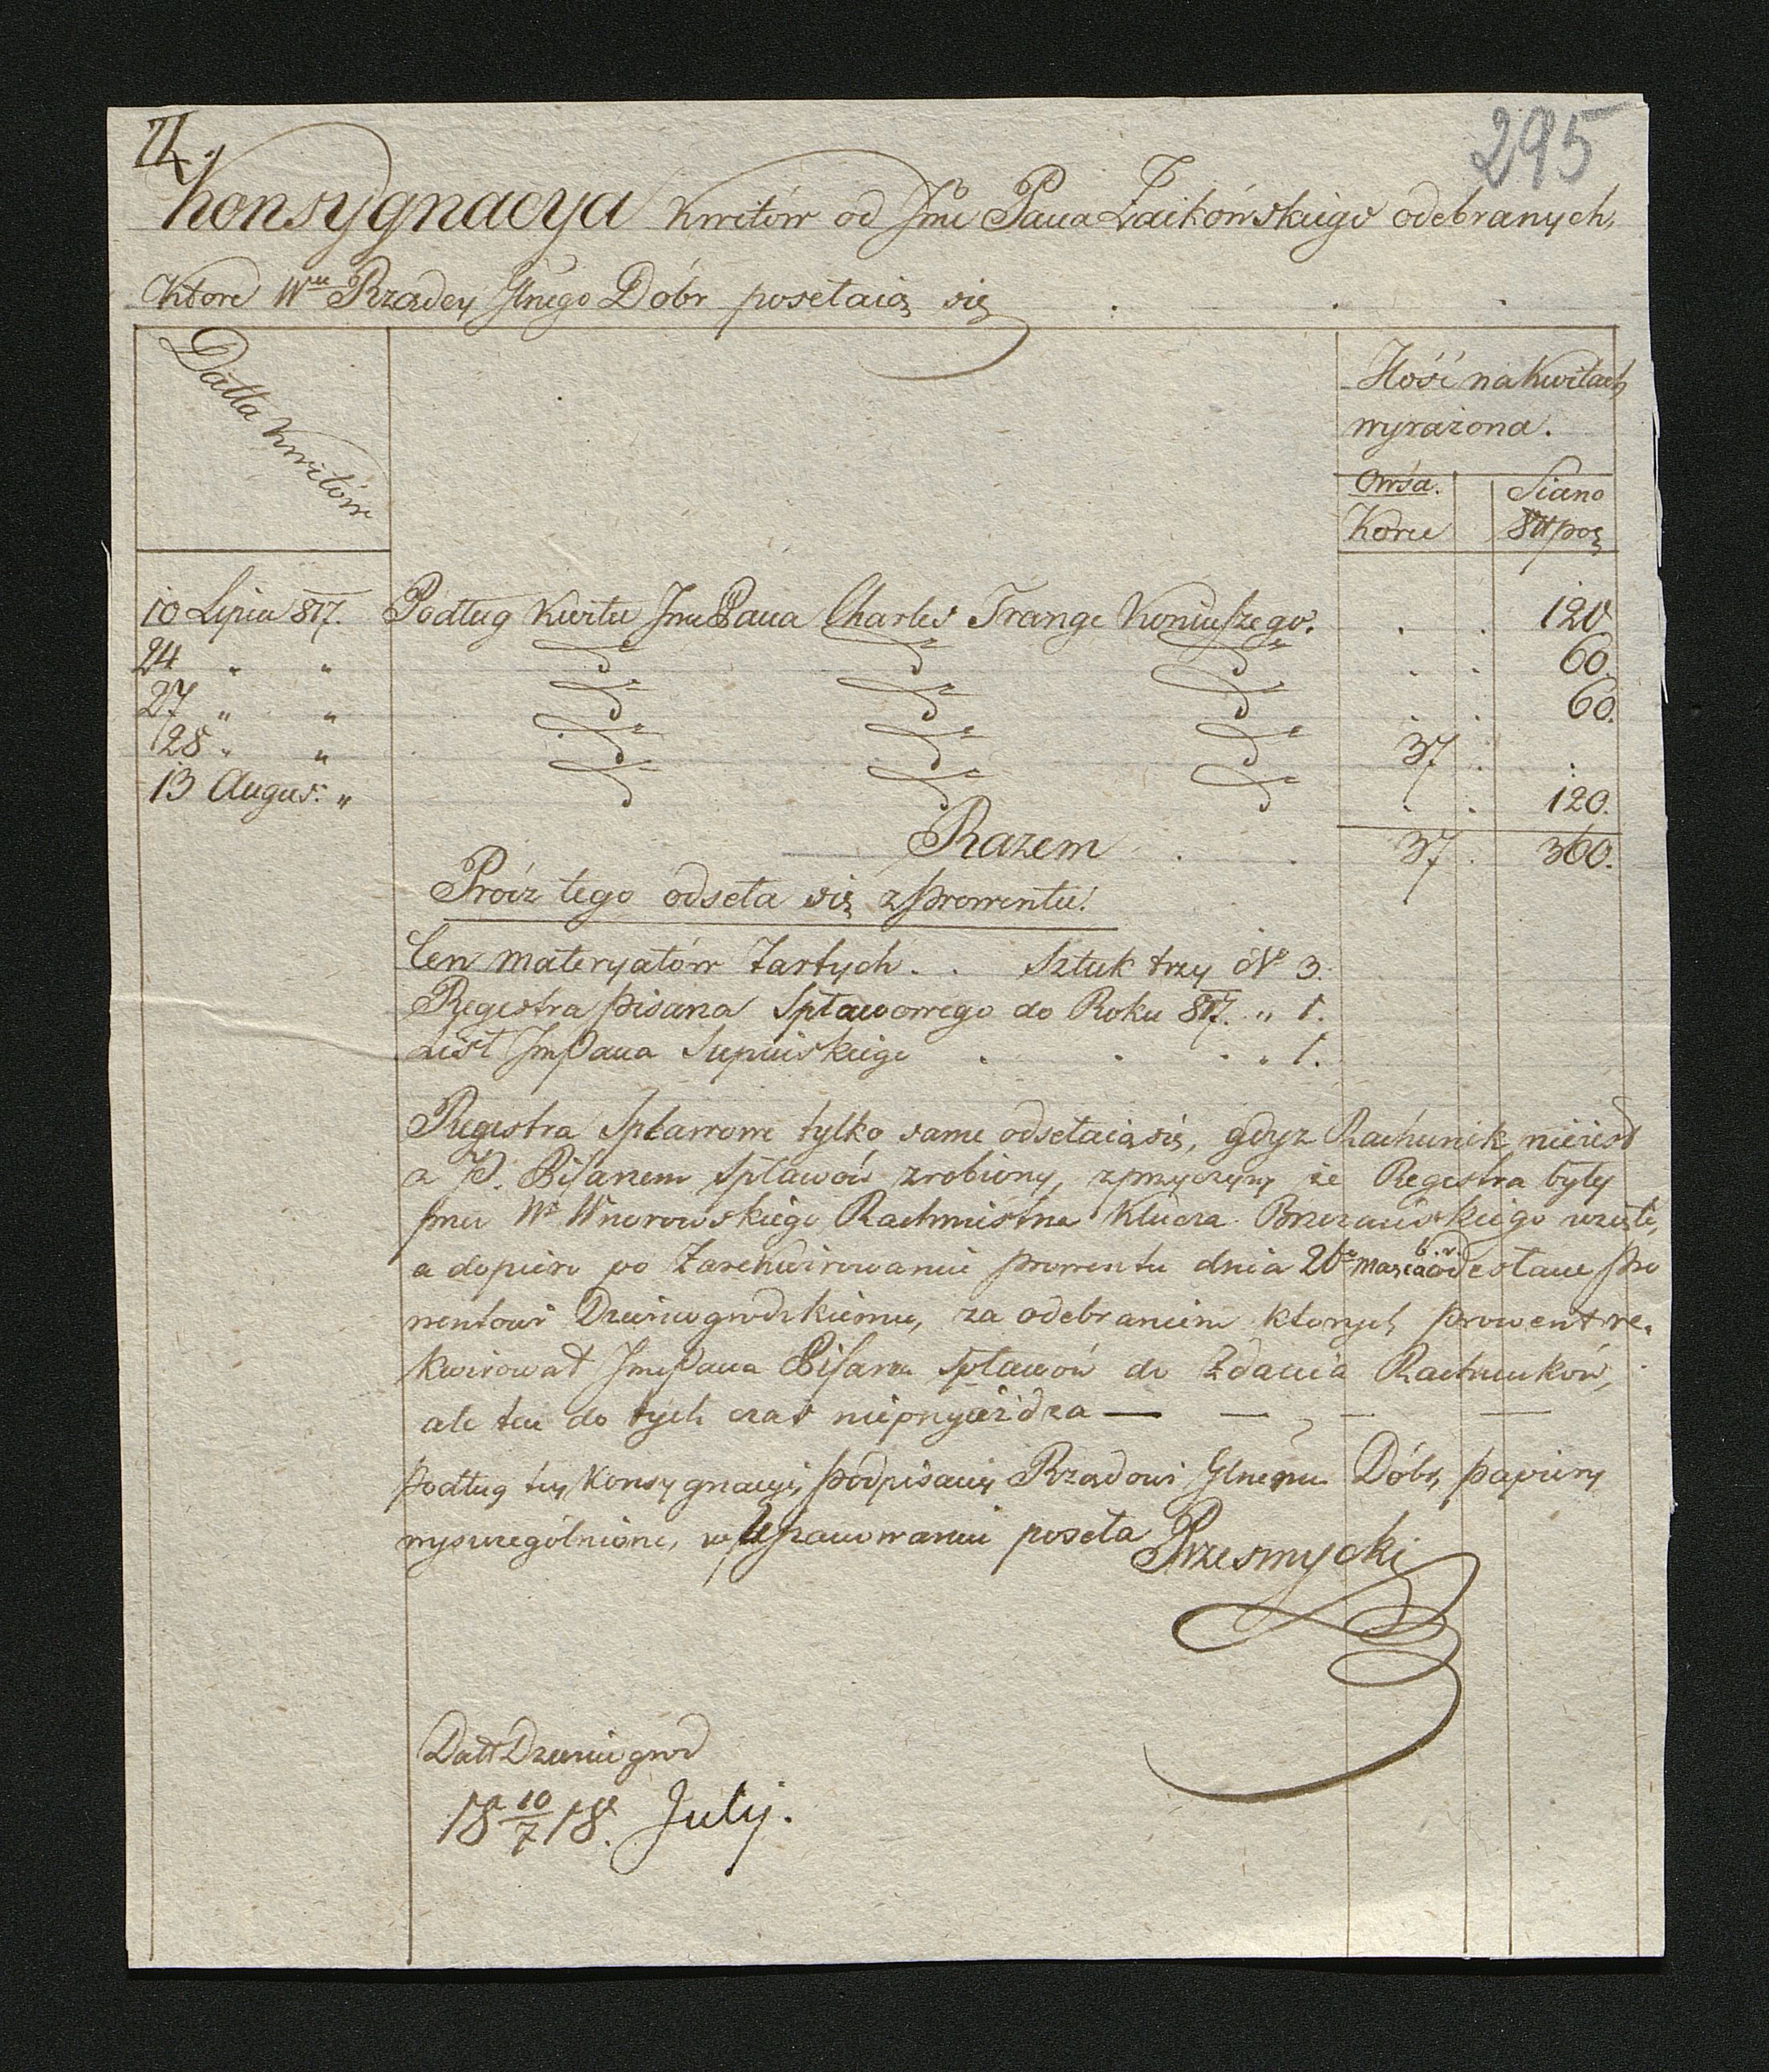 295
Konsygnacya Kwitów od Jmć Pana Zaikówskiego odebranych,
które Wu Rządcy Glnego Dóbr posełaią się
Datta Kwitów
Ilość na Kwitach
wyrażona.
Owsa. Siano
Korcu Stopoz
10 Lipca 817. Podług Kwitu Jmć Pana Charles Trange Koniuszego. . . 120
24 " " d° d° d° . . 60.
27 " " d° d° d° . . 60.
28 " " d° d° d° 37 . .
13 Augus: " d° d° d° . . 120.
Razem . . 37. 360.
Prócz tego odseła się z Prowentu.
Cen materyałów Tartych . . Sztuk trzy N° 3.
Regestra pisarza Spławowego do Roku 817. " 1.
List JmPana Supińskiego . . . " 1.
Regestra Spławowe tylko same odsełaią się, gdyż Rachunek nieiest
z P. Pisarzem Spławów zrobiony, z przyczyny że Regestra były
przez Wo Wnorowskiego Rachmistrza Klucza wzięte,
a dopiero po Zarekwirowaniu prowentu dnia 26o Marca b.r. odesłane Pro
wentowi Dzwinogrodzkiemu, za odebraniem których prowent re=
kwirował JmPana Pisarza Spławów do Zdania Rachunków,
ale ten do tych czas nieprzyieżdza — — — —
Podług tey Konsygnacyi podpisany Rządowi Glnemu Dóbr, papiery
wyszczególnione, w Uszanowaniu poseła Przesmycki
Datt Dzwinogrod
18 10/7 18. July.